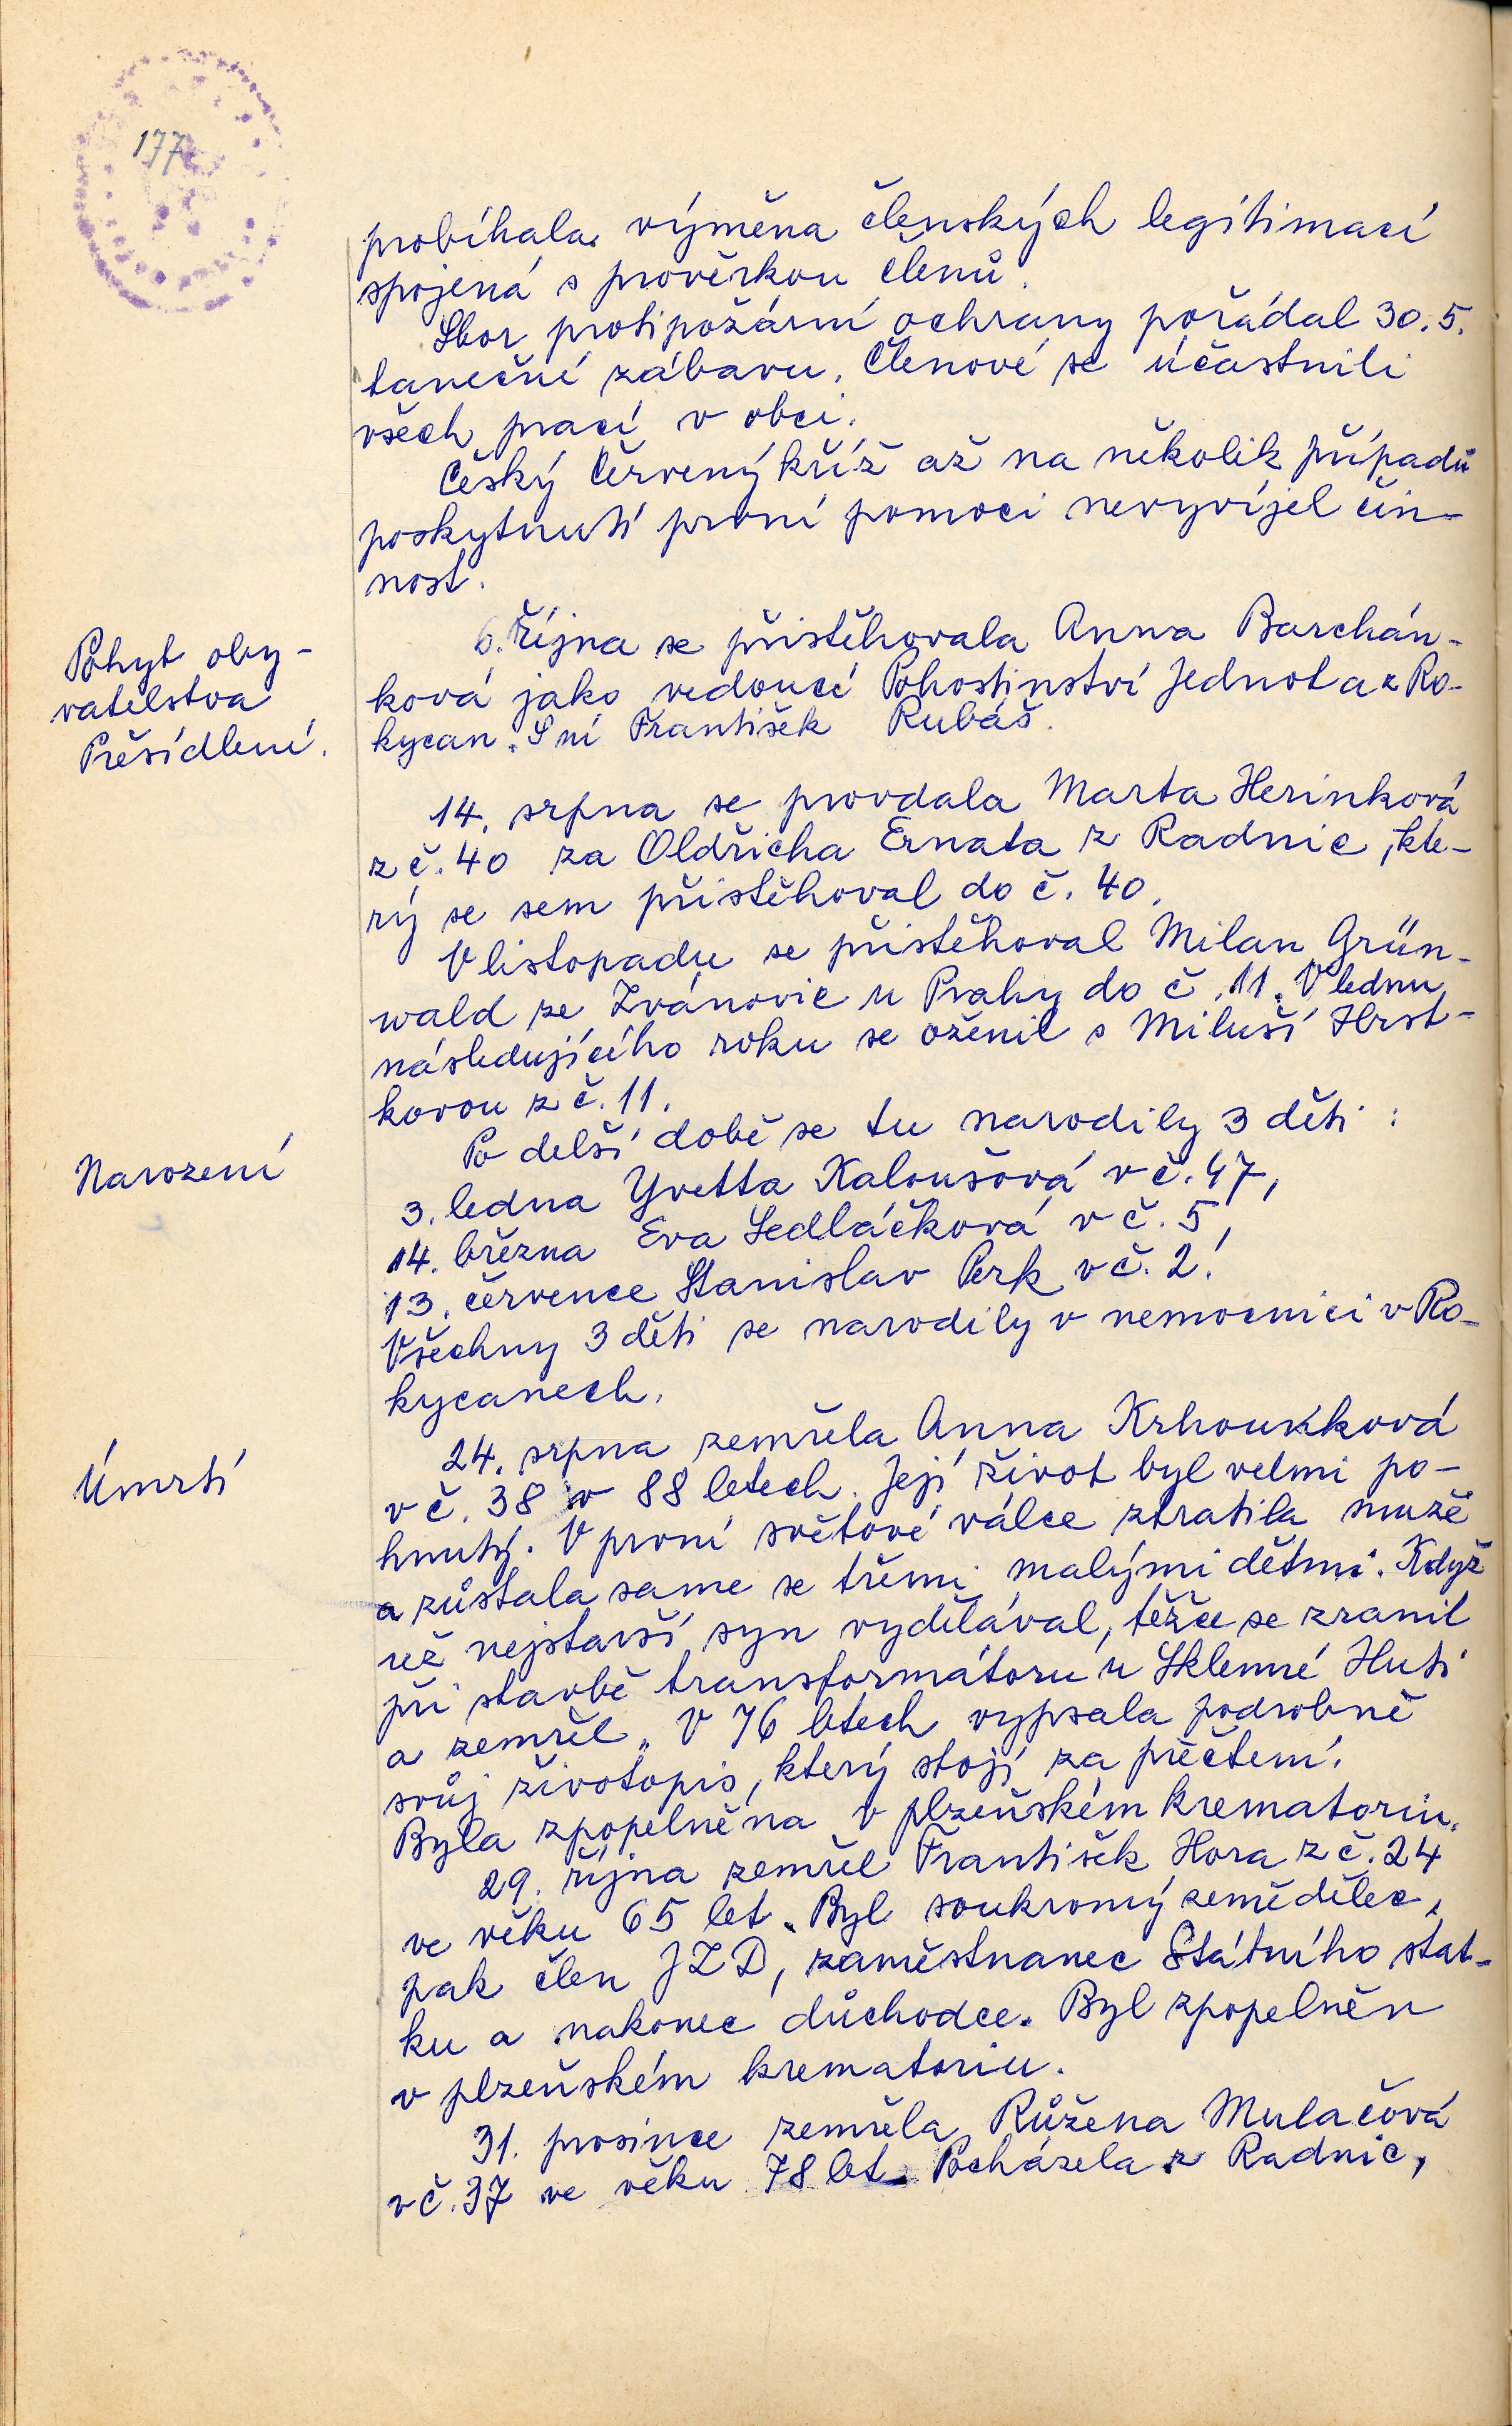 177
probíhala výměna členských legitimací
spojená s prověrkou členů.
Sbor protipožární ochrany pořádal 30. 5.
taneční zábavu. Členové se účastnili
všech prací v obci.
Český červený kříž až na několik případů
poskytnutí první pomoci nevyvíjel čin-
nost.
Pohyb oby-
vatelstva
Přesídlení.
6. října se přistěhovala Anna Barchán-
ková jako vedoucí Pohostinství Jednota z Ro-
kycan. S ní František Rubáš.
14. srpna se provdala Marta Herinková
z č. 40 za Oldřicha Ernata z Radnic, kte-
rý se sem přistěhoval do č. 40.
V listopadu se přistěhoval Milan Grün-
wald ze Zvánovic u Prahy do č. 11. V lednu
následujícího roku se oženil s Miluší Hrst-
kovou z č. 11.
Narození
Po delší době se tu narodily 3 děti:
3. ledna Yvetta Kaloušová v č. 47,
14. března Eva Sedláčková v č. 5,
13. července Stanislav Perk v č. 2.
Všechny 3 děti se narodily v nemocnici v Ro-
kycanech.
Úmrtí
24. srpna zemřela Anna Krhounková
v č. 38 v 88 letech. Její život byl velmi po-
hnutý. V první světové válce ztratila muže
a zůstala same se třemi malými dětmi. Když
už nejstarší syn vydělával, těžce se zranil
při stavbě transformátoru u Sklenné Huti
a zemřel. V 76 letech vypsala podrobně
svůj životopis, který stojí za přečtení.
Byla zpopelněna v plzeňském krematoriu.
29. října zemřel František Hora z č. 24
ve věku 65 let. Byl soukromý zemědělec,
pak člen JZD, zaměstnanec Státního stat-
ku a nakonec důchodce. Byl zpopelněn
v plzeňském krematoriu.
31. prosince zemřela Růžena Mulačová
v č. 37 ve věku 78 let. Pocházela z Radnic,